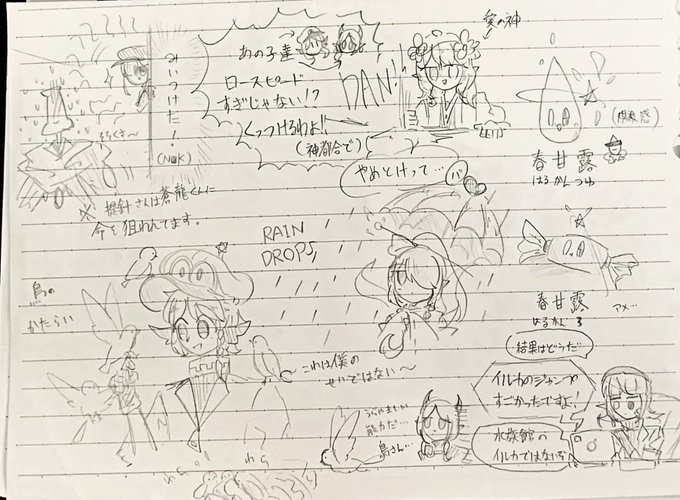 みぃつけた!
(Nök)
※ 提針さんは蒼龍くんに
命を狙われてます。
あの子達
ロースピード
すぎじゃない!?
くっつけるわよ!!
(神都合で)
DAN!
愛の神
やめとけって…
春甘露
はるかんつゆ
RAIN
DROPS
鳥の
かたらい
〜これは僕の
せいではない〜
春甘露
はるかんろ
アメ…
結果はどうだ
イルカのジャンプ
すごかったですよ!
水族館の
イルカではないな
うらやましい
能力だ…
鳥さん…